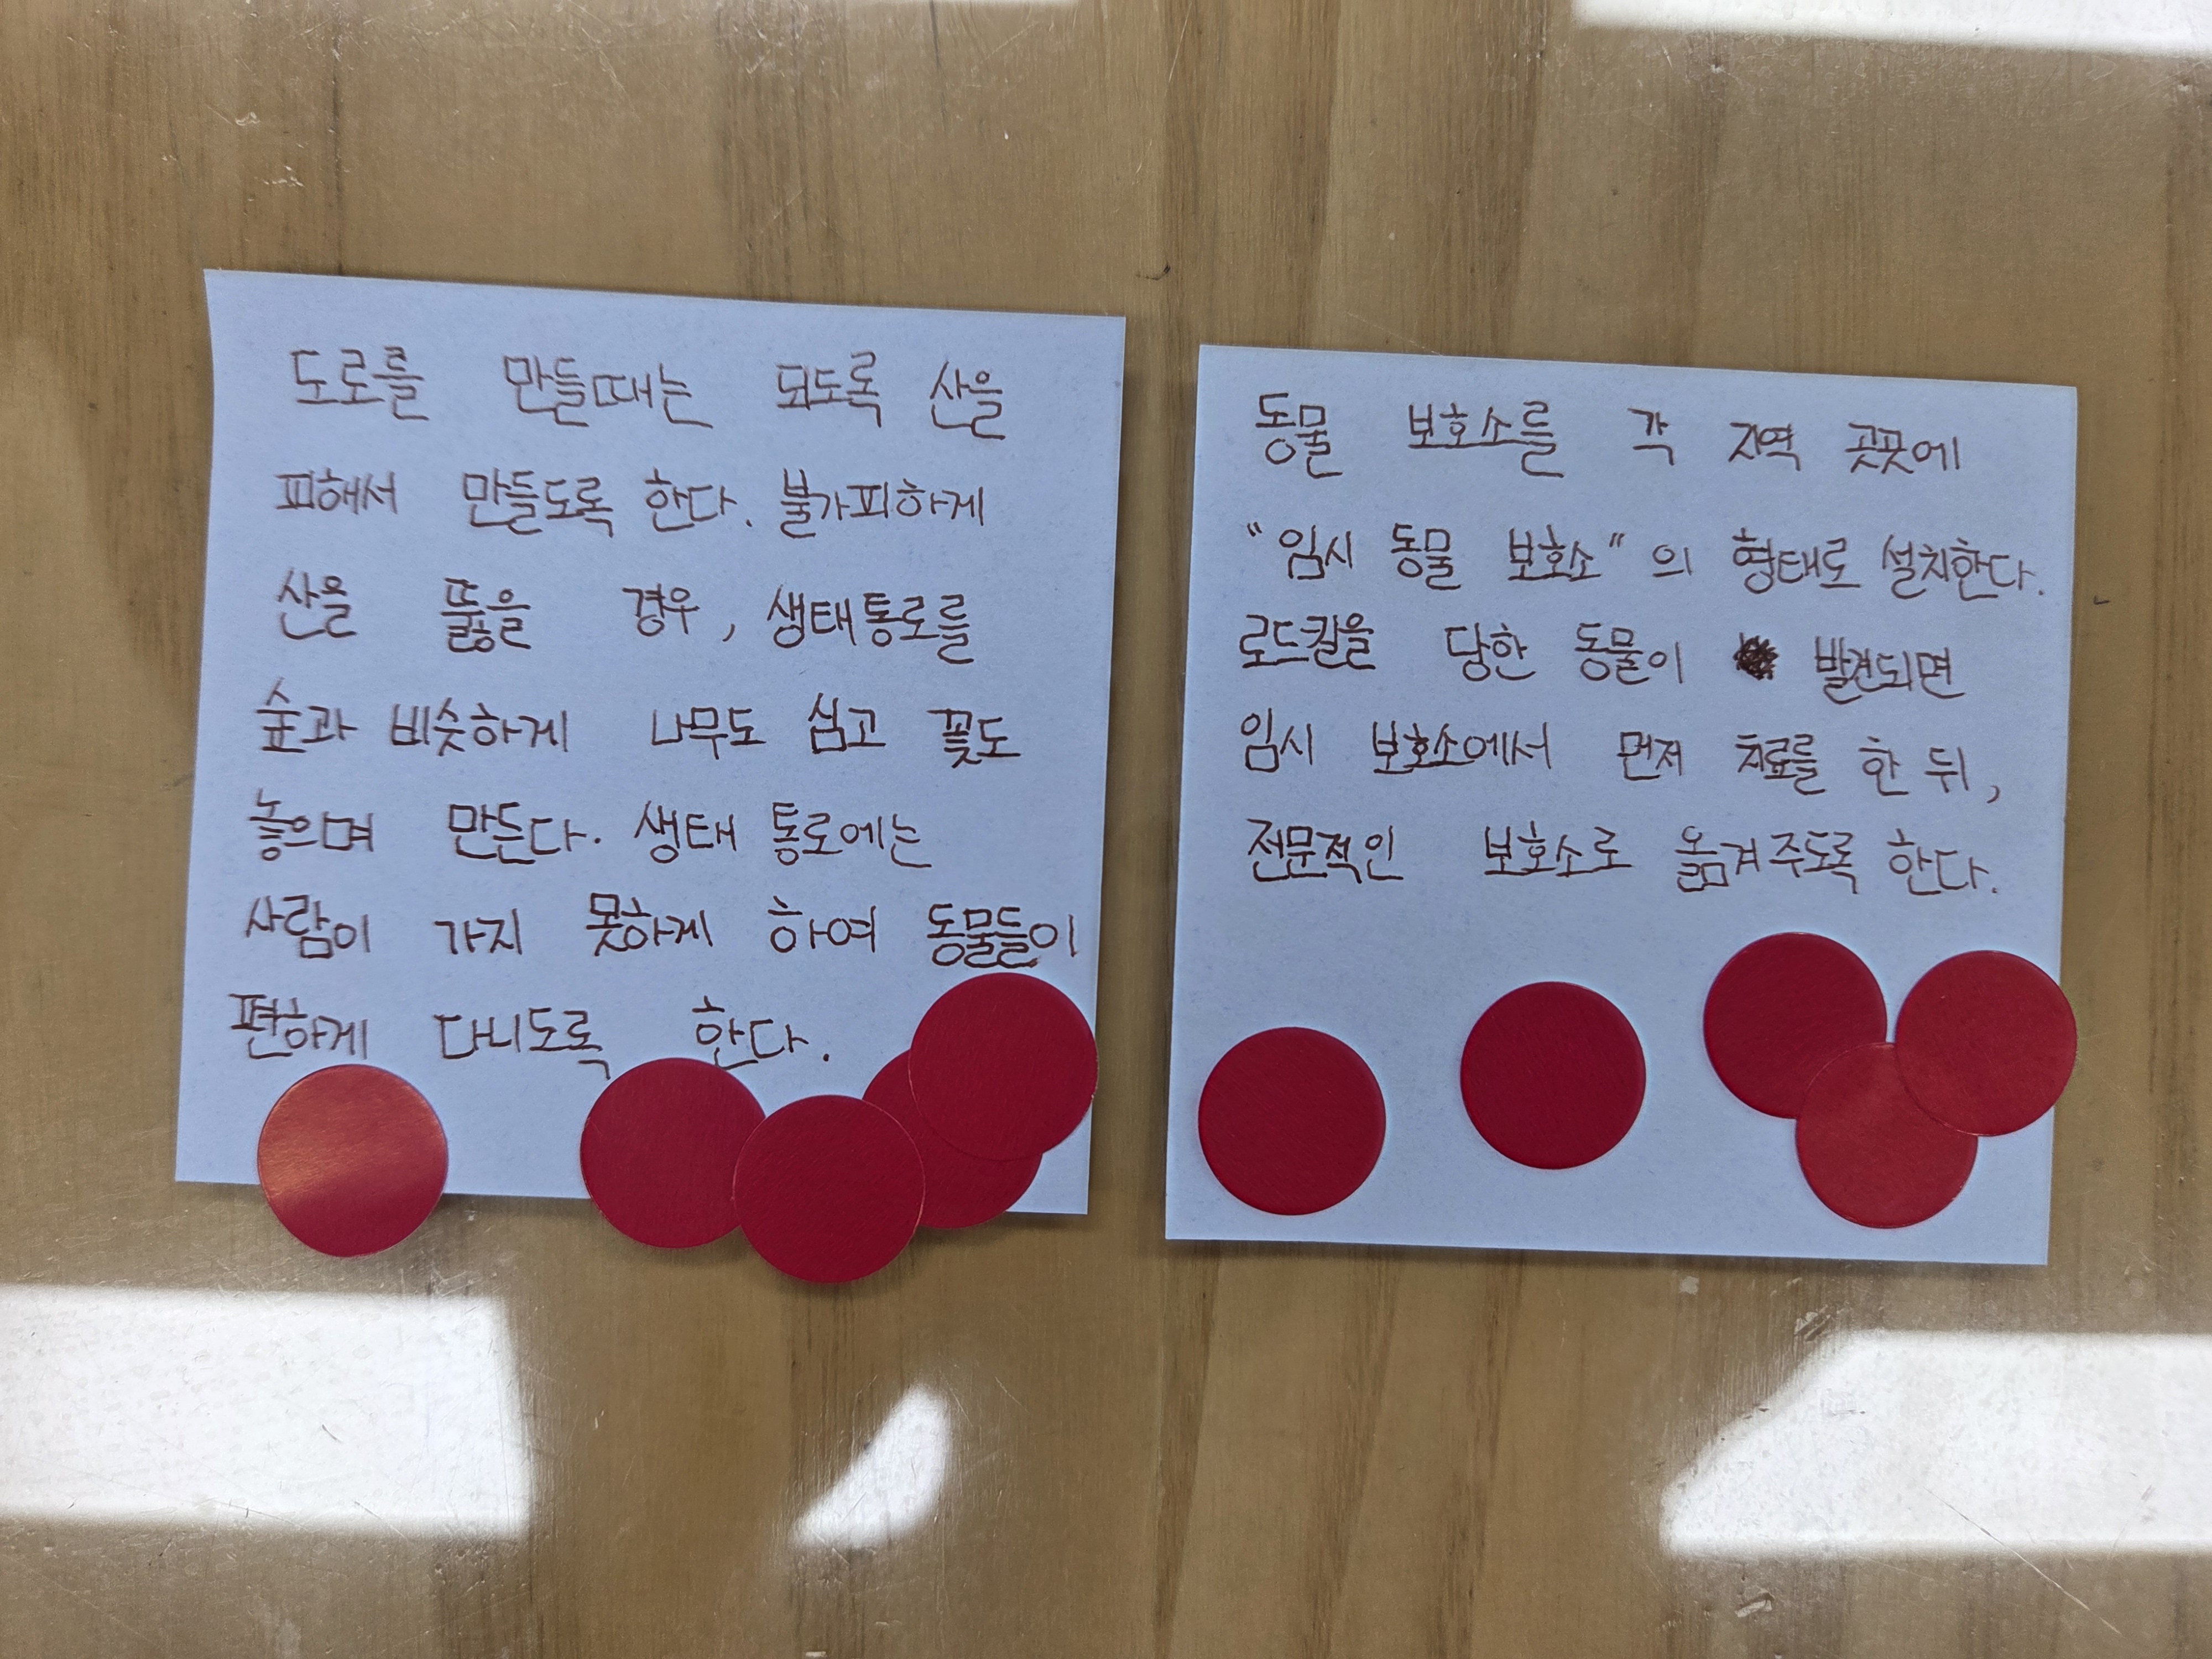 도로를 만들때는 되도록 산을
피해서 만들도록 한다. 불가피하게
산을 뚫을 경우, 생태통로를
숲과 비슷하게 나무도 심고 꽃도
놓으며 만든다. 생태 통로에는
사람이 가지 못하게 하여 동물들이
편하게 다니도록 한다.
동물 보호소를 각 지역 곳곳에
"임시 동물 보호소"의 형태로 설치한다.
로드킬을 당한 동물이 발견되면
임시 보호소에서 먼저 치료를 한 뒤,
전문적인 보호소로 옮겨주도록 한다.